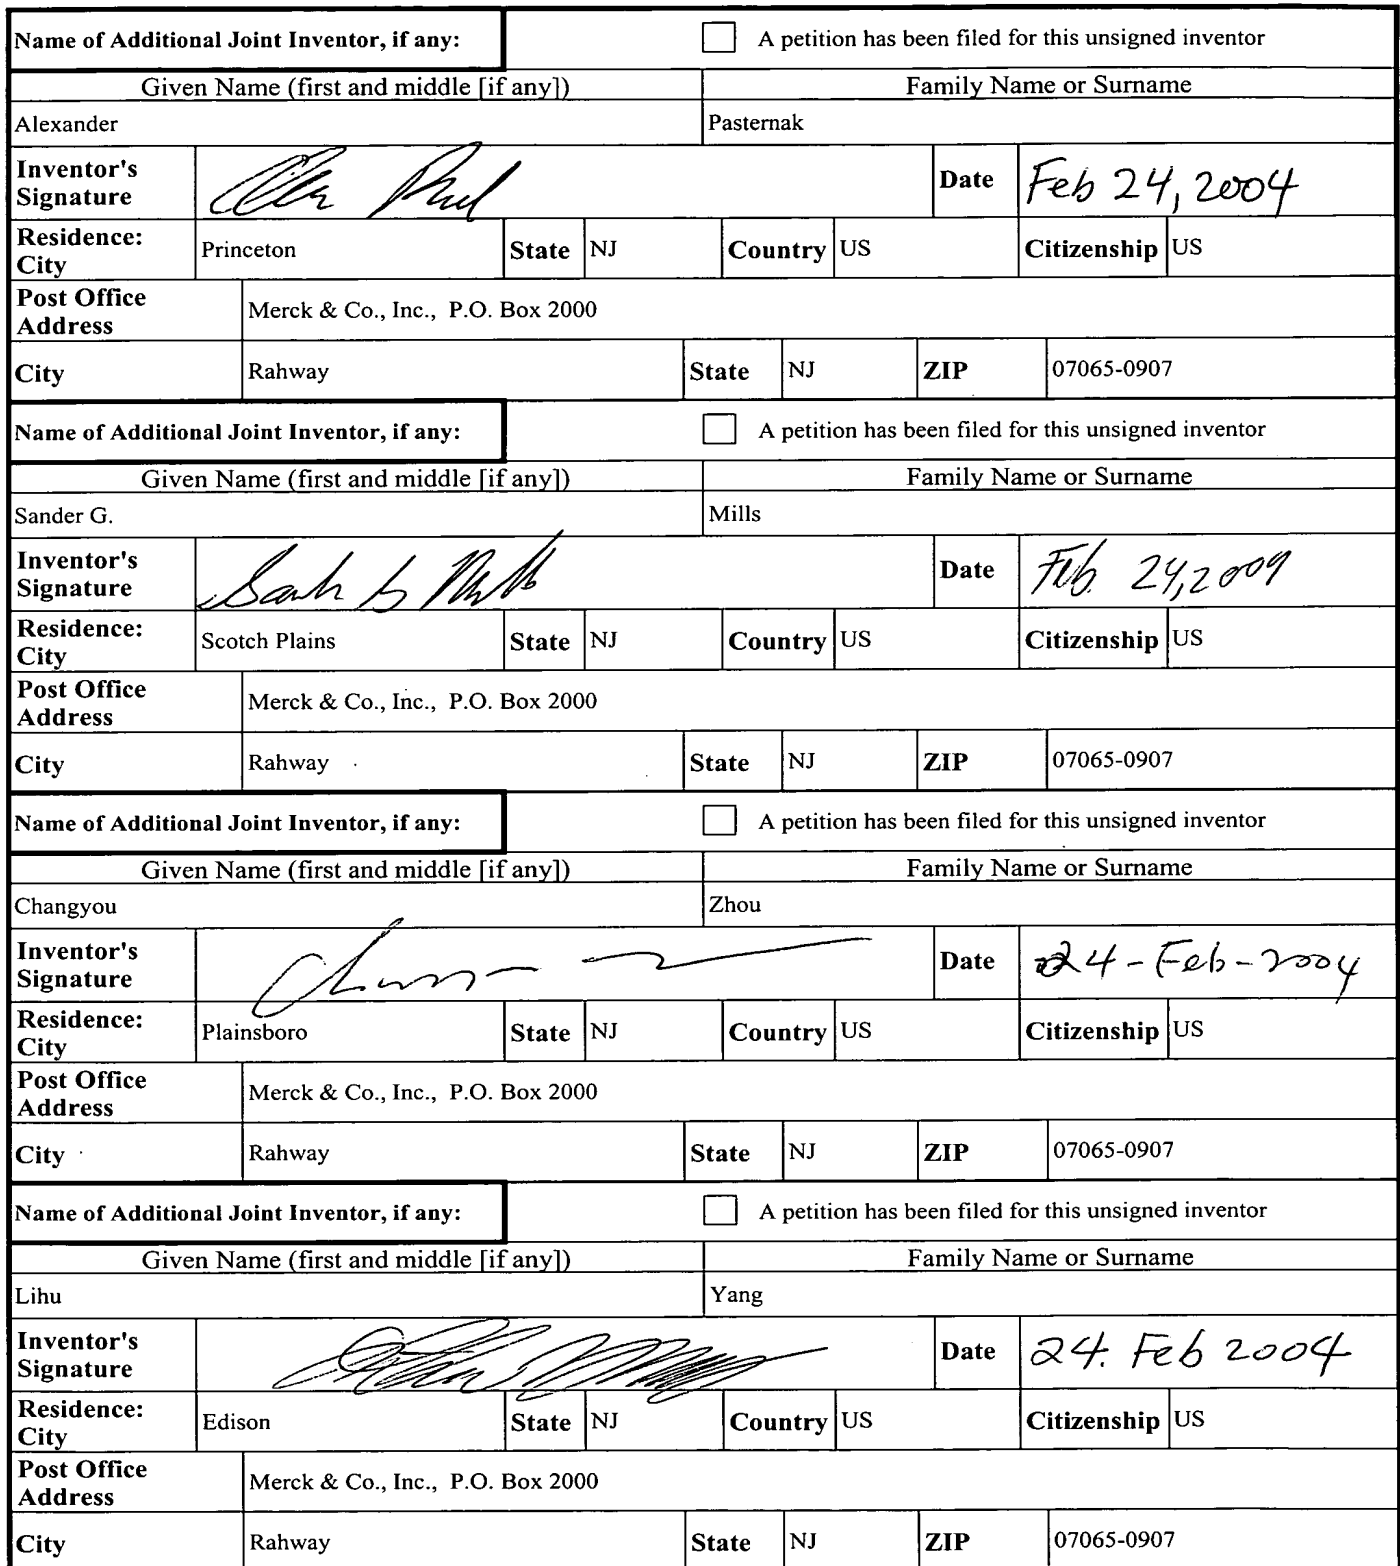 Name of Additional Joint Inventor, if any: A petition has been filed for this unsigned inventor
Given Name (first and middle [if any]) Family Name or Surname
Alexander Pasternak
Inventor's Signature Date Feb 24, 2004
Residence: City Princeton State NJ Country US Citizenship US
Post Office Address Merck & Co., Inc., P.O. Box 2000
City Rahway State NJ ZIP 07065-0907
Name of Additional Joint Inventor, if any: A petition has been filed for this unsigned inventor
Given Name (first and middle [if any]) Family Name or Surname
Sander G. Mills
Inventor's Signature Date Feb. 24, 2004
Residence: City Scotch Plains State NJ Country US Citizenship US
Post Office Address Merck & Co., Inc., P.O. Box 2000
City Rahway State NJ ZIP 07065-0907
Name of Additional Joint Inventor, if any: A petition has been filed for this unsigned inventor
Given Name (first and middle [if any]) Family Name or Surname
Changyou Zhou
Inventor's Signature Date 24-Feb-2004
Residence: City Plainsboro State NJ Country US Citizenship US
Post Office Address Merck & Co., Inc., P.O. Box 2000
City Rahway State NJ ZIP 07065-0907
Name of Additional Joint Inventor, if any: A petition has been filed for this unsigned inventor
Given Name (first and middle [if any]) Family Name or Surname
Lihu Yang
Inventor's Signature Date 24. Feb 2004
Residence: City Edison State NJ Country US Citizenship US
Post Office Address Merck & Co., Inc., P.O. Box 2000
City Rahway State NJ ZIP 07065-0907